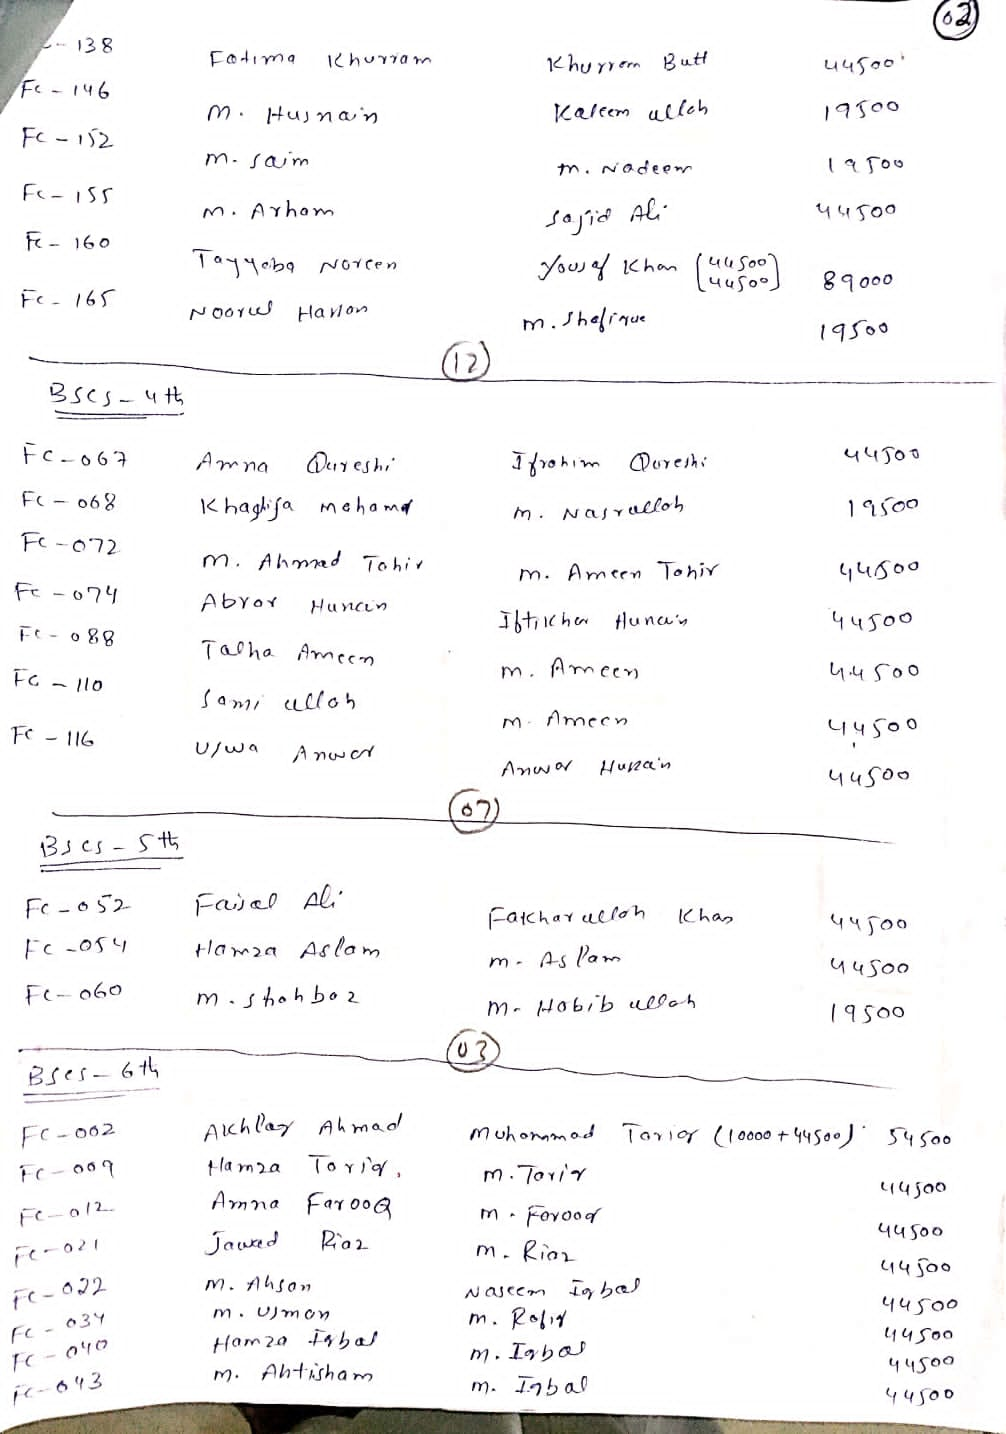 02
138 Fatima Khurram Khurrem Butt 44500
Fc - 146 M. Husnain Kaleem ullah 19500
Fc - 152 M. Saim M. Nadeem 19500
Fc - 155 M. Arham Sajid Ali 44500
Fc - 160 Tayyaba Noreen Yousaf Khan (44500 44500) 89000
Fc - 165 Noorul Harion M. Shafique 19500
12
BSCS - 4th
Fc - 067 Amna Qureshi Ifrahim Qureshi 44500
Fc - 068 M. Nasrullah 19500
Fc - 072 M. Ahmad Tahir M. Ameen Tahir 44500
Fc - 074 Abror Hunain Iftikhar Hunain 44500
Fc - 088 Talha Ameen M. Ameen 44500
Fc - 110 Sami ullah M. Ameen 44500
Fc - 116 Uswa Anwar Anwar Hussain 44500
07
BSCS - 5th
Fc - 052 Faisal Ali Fakharullah Khan 44500
Fc - 054 Hamza Aslam M. Aslam 44500
Fc - 060 M. Shahbaz M. Habib ullah 19500
03
BSCS - 6th
Fc - 002 Akhlaq Ahmad Muhammad Tariq (10000 + 44500) 54500
Fc - 009 Hamza Tariq. M. Tariq 44500
Fc - 012 Amna FarooQ M. Farooq 44500
Fc - 021 Jawad Riaz M. Riaz 44500
Fc - 022 M. Ahsan Naseem Iqbal 44500
Fc - 034 M. Usman M. Rafiq 44500
Fc - 040 Hamza Iqbal M. Iqbal 44500
Fc - 043 M. Ahtisham M. Iqbal 44500